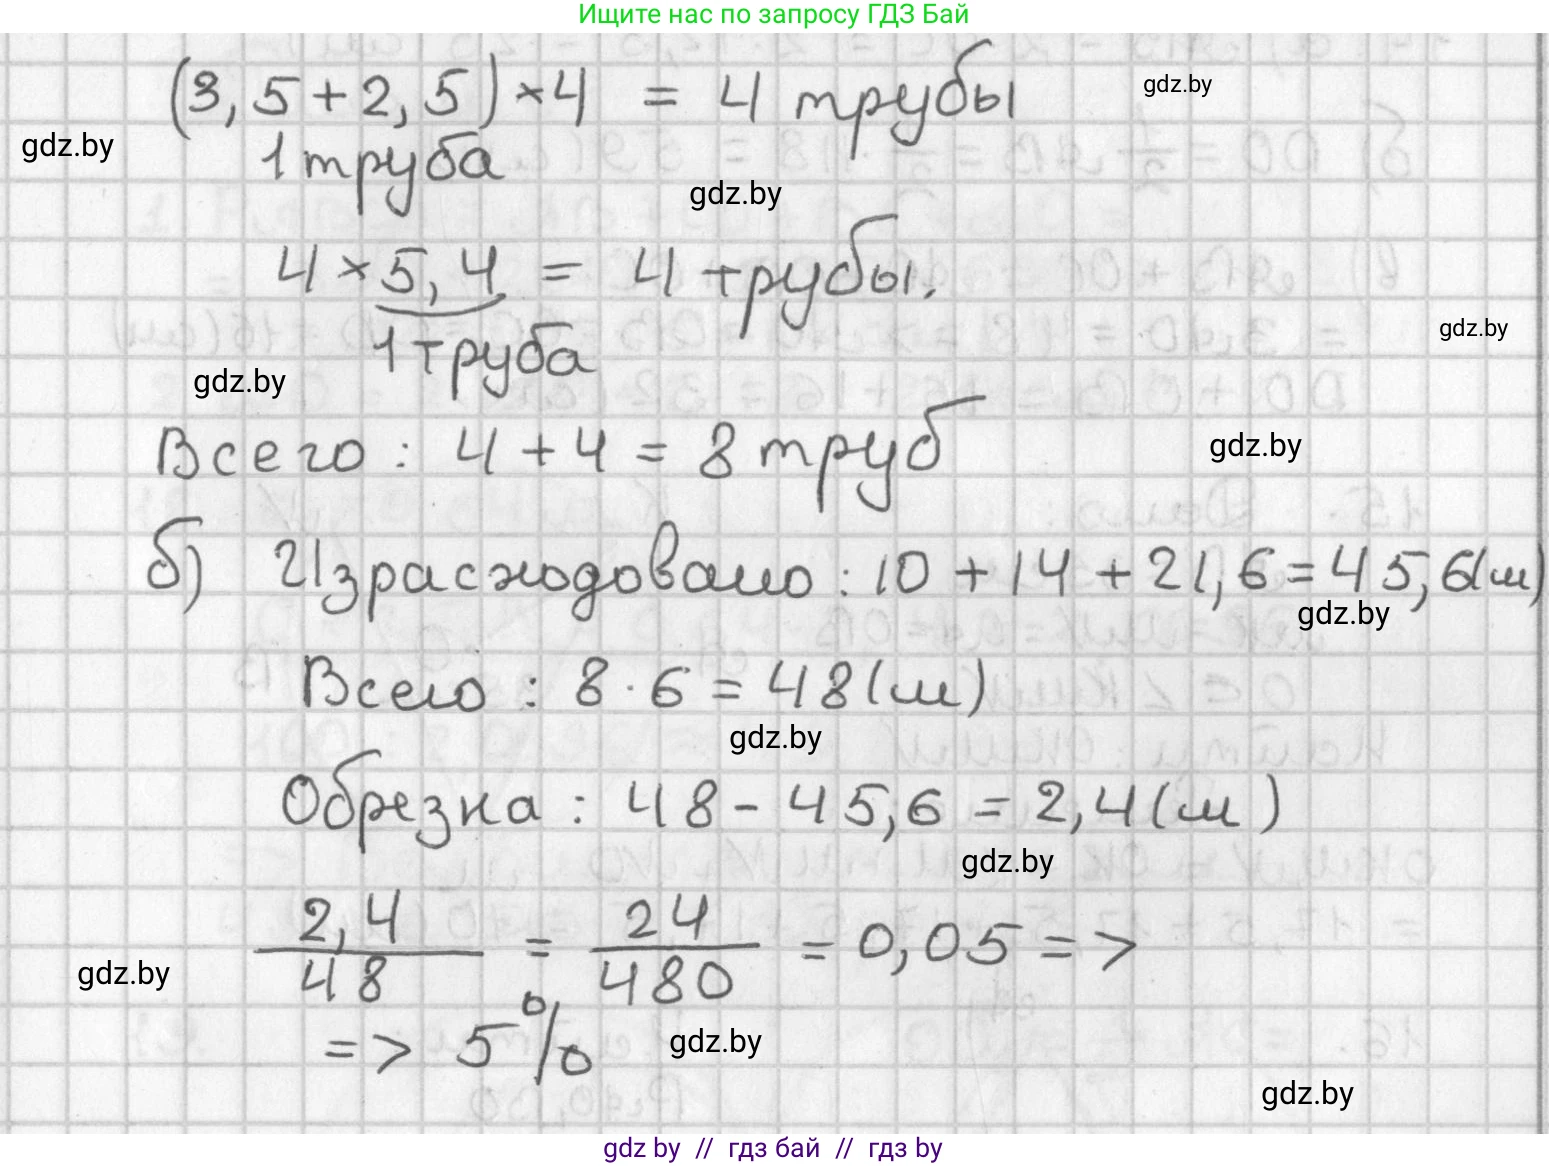 Ищите нас по запросу ГДЗ Бай
(3,5+2,5)×4 = 4 трубы
gdz.by
gdz.by
1 труба
gdz.by
4×5,4 = 4 трубы.
gdz.by
1 труба
gdz.by
Всего: 4+4 = 8 труб
gdz.by
б) Израсходовано: 10+14+21,6=45,6(м)
gdz.by
Всего: 8·6=48(м)
gdz.by
Обрезка: 48-45,6=2,4(м)
gdz.by
2,4/48 = 24/480 = 0,05 =>
gdz.by
=> 5%
gdz.by
gdz.by
gdz by // гдз бай // гдз by